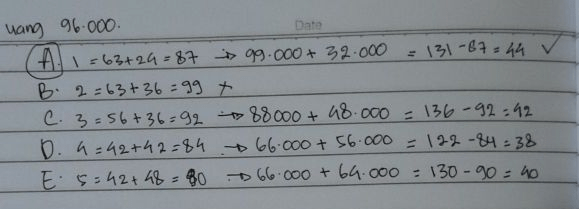 Date
uang 96.000.
A. 1 = 63+24 = 87 → 99.000 + 32.000 = 131 - 87 = 44 ✓
B. 2 = 63+36 = 99 ×
C. 3 = 56+36 = 92 → 88000 + 48.000 = 136 - 92 = 42
D. 4 = 42+42 = 84 → 66.000 + 56.000 = 122 - 84 = 38
E. 5 = 42+48 = 90 → 66.000 + 64.000 = 130 - 90 = 40